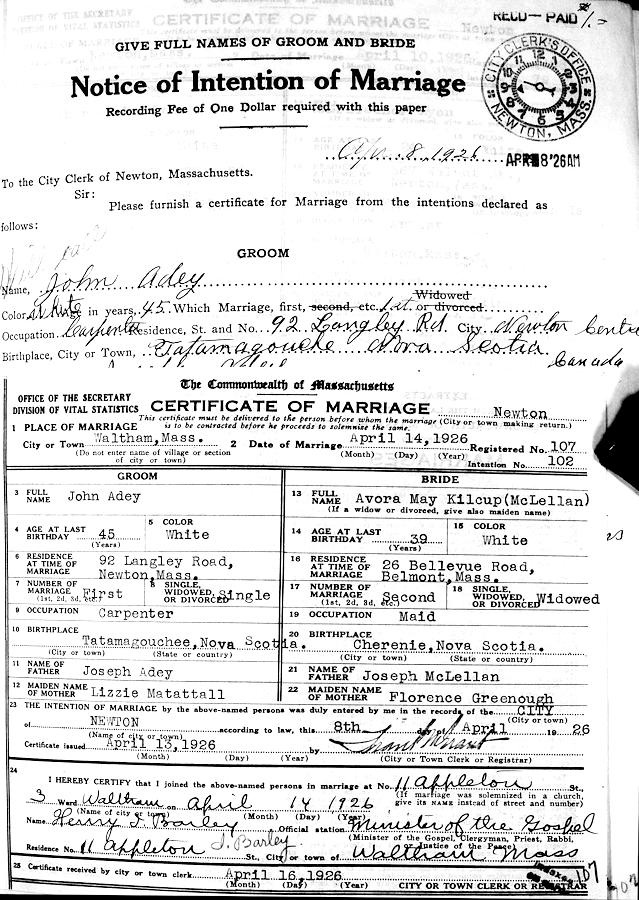 RECD— PAID 1.–
CERTIFICATE OF MARRIAGE
GIVE FULL NAMES OF GROOM AND BRIDE
Notice of Intention of Marriage
Recording Fee of One Dollar required with this paper
CITY CLERK'S OFFICE
NEWTON, MASS.
Apr. 8, 1926 APR 8 '26 AM
To the City Clerk of Newton, Massachusetts.
Sir:
Please furnish a certificate for Marriage from the intentions declared as
follows:
GROOM
Name, John Adey
Color, White in years, 45. Which Marriage, first, second, etc. 1st. Widowed or divorced
Occupation Carpenter Residence, St. and No. 92 Langley Rd. City. Newton Centre
Birthplace, City or Town, Tatamagouche Nova Scotia
Canada
The Commonwealth of Massachusetts
OFFICE OF THE SECRETARY
DIVISION OF VITAL STATISTICS
CERTIFICATE OF MARRIAGE Newton
(City or town making return.)
This certificate must be delivered to the person before whom the marriage
is to be contracted before he proceeds to solemnize the same.
1 PLACE OF MARRIAGE
City or Town Waltham, Mass. 2 Date of Marriage April 14, 1926 Registered No. 107
(Do not enter name of village or section of city or town) (Month) (Day) (Year) Intention No. 102
GROOM
3 FULL NAME John Adey
4 AGE AT LAST BIRTHDAY 45 (Years) 5 COLOR White
6 RESIDENCE AT TIME OF MARRIAGE 92 Langley Road, Newton, Mass.
7 NUMBER OF MARRIAGE (1st, 2d, 3d, etc.) First 8 SINGLE, WIDOWED, OR DIVORCED Single
9 OCCUPATION Carpenter
10 BIRTHPLACE Tatamagouchee, Nova Scotia.
(City or town) (State or country)
11 NAME OF FATHER Joseph Adey
12 MAIDEN NAME OF MOTHER Lizzie Matattall
BRIDE
13 FULL NAME Avora May Kilcup(McLellan)
(If a widow or divorced, give also maiden name)
14 AGE AT LAST BIRTHDAY 39 (Years) 15 COLOR White
16 RESIDENCE AT TIME OF MARRIAGE 26 Bellevue Road, Belmont, Mass.
17 NUMBER OF MARRIAGE (1st, 2d, 3d, etc.) Second 18 SINGLE, WIDOWED, OR DIVORCED Widowed
19 OCCUPATION Maid
20 BIRTHPLACE Cherenie, Nova Scotia.
(City or town) (State or country)
21 NAME OF FATHER Joseph McLellan
22 MAIDEN NAME OF MOTHER Florence Greenough
23 THE INTENTION OF MARRIAGE by the above-named persons was duly entered by me in the records of the CITY
(City or town)
of NEWTON according to law, this 8th day of April 19 26
(Name of city or town)
Certificate issued April 13, 1926 by
(Month) (Day) (Year) (City or Town Clerk or Registrar)
24 I HEREBY CERTIFY that I joined the above-named persons in marriage at No. 11 Appleton St.,
(If marriage was solemnized in a church, give its NAME instead of street and number)
3 Ward Waltham on April 14 1926
(Name of city or town) (Month) (Day) (Year)
Name Henry J. Barley Official station Minister of the Gospel
(Minister of the Gospel, Clergyman, Priest, Rabbi, or Justice of the Peace)
J. Barley
Residence No. 11 Appleton St., City or town of Waltham Mass
25 Certificate received by city or town clerk April 16, 1926
(Month) (Day) (Year) CITY OR TOWN CLERK OR REGISTRAR
107